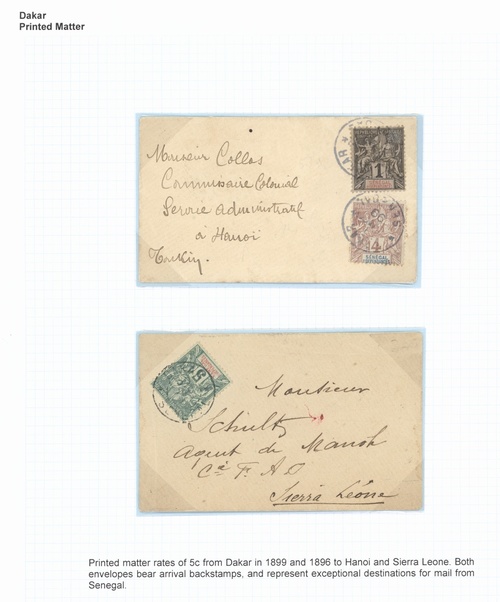 Dakar
Printed Matter
Monsieur Collas
Commissaire Colonial
Service Administratif
à Hanoï
Tonkin.
1
4
SÉNÉGAL
5
Monsieur
Schultz
Agent de Maison
Cie F. A. O
Sierra Léone
Printed matter rates of 5c from Dakar in 1899 and 1896 to Hanoi and Sierra Leone. Both
envelopes bear arrival backstamps, and represent exceptional destinations for mail from
Senegal.